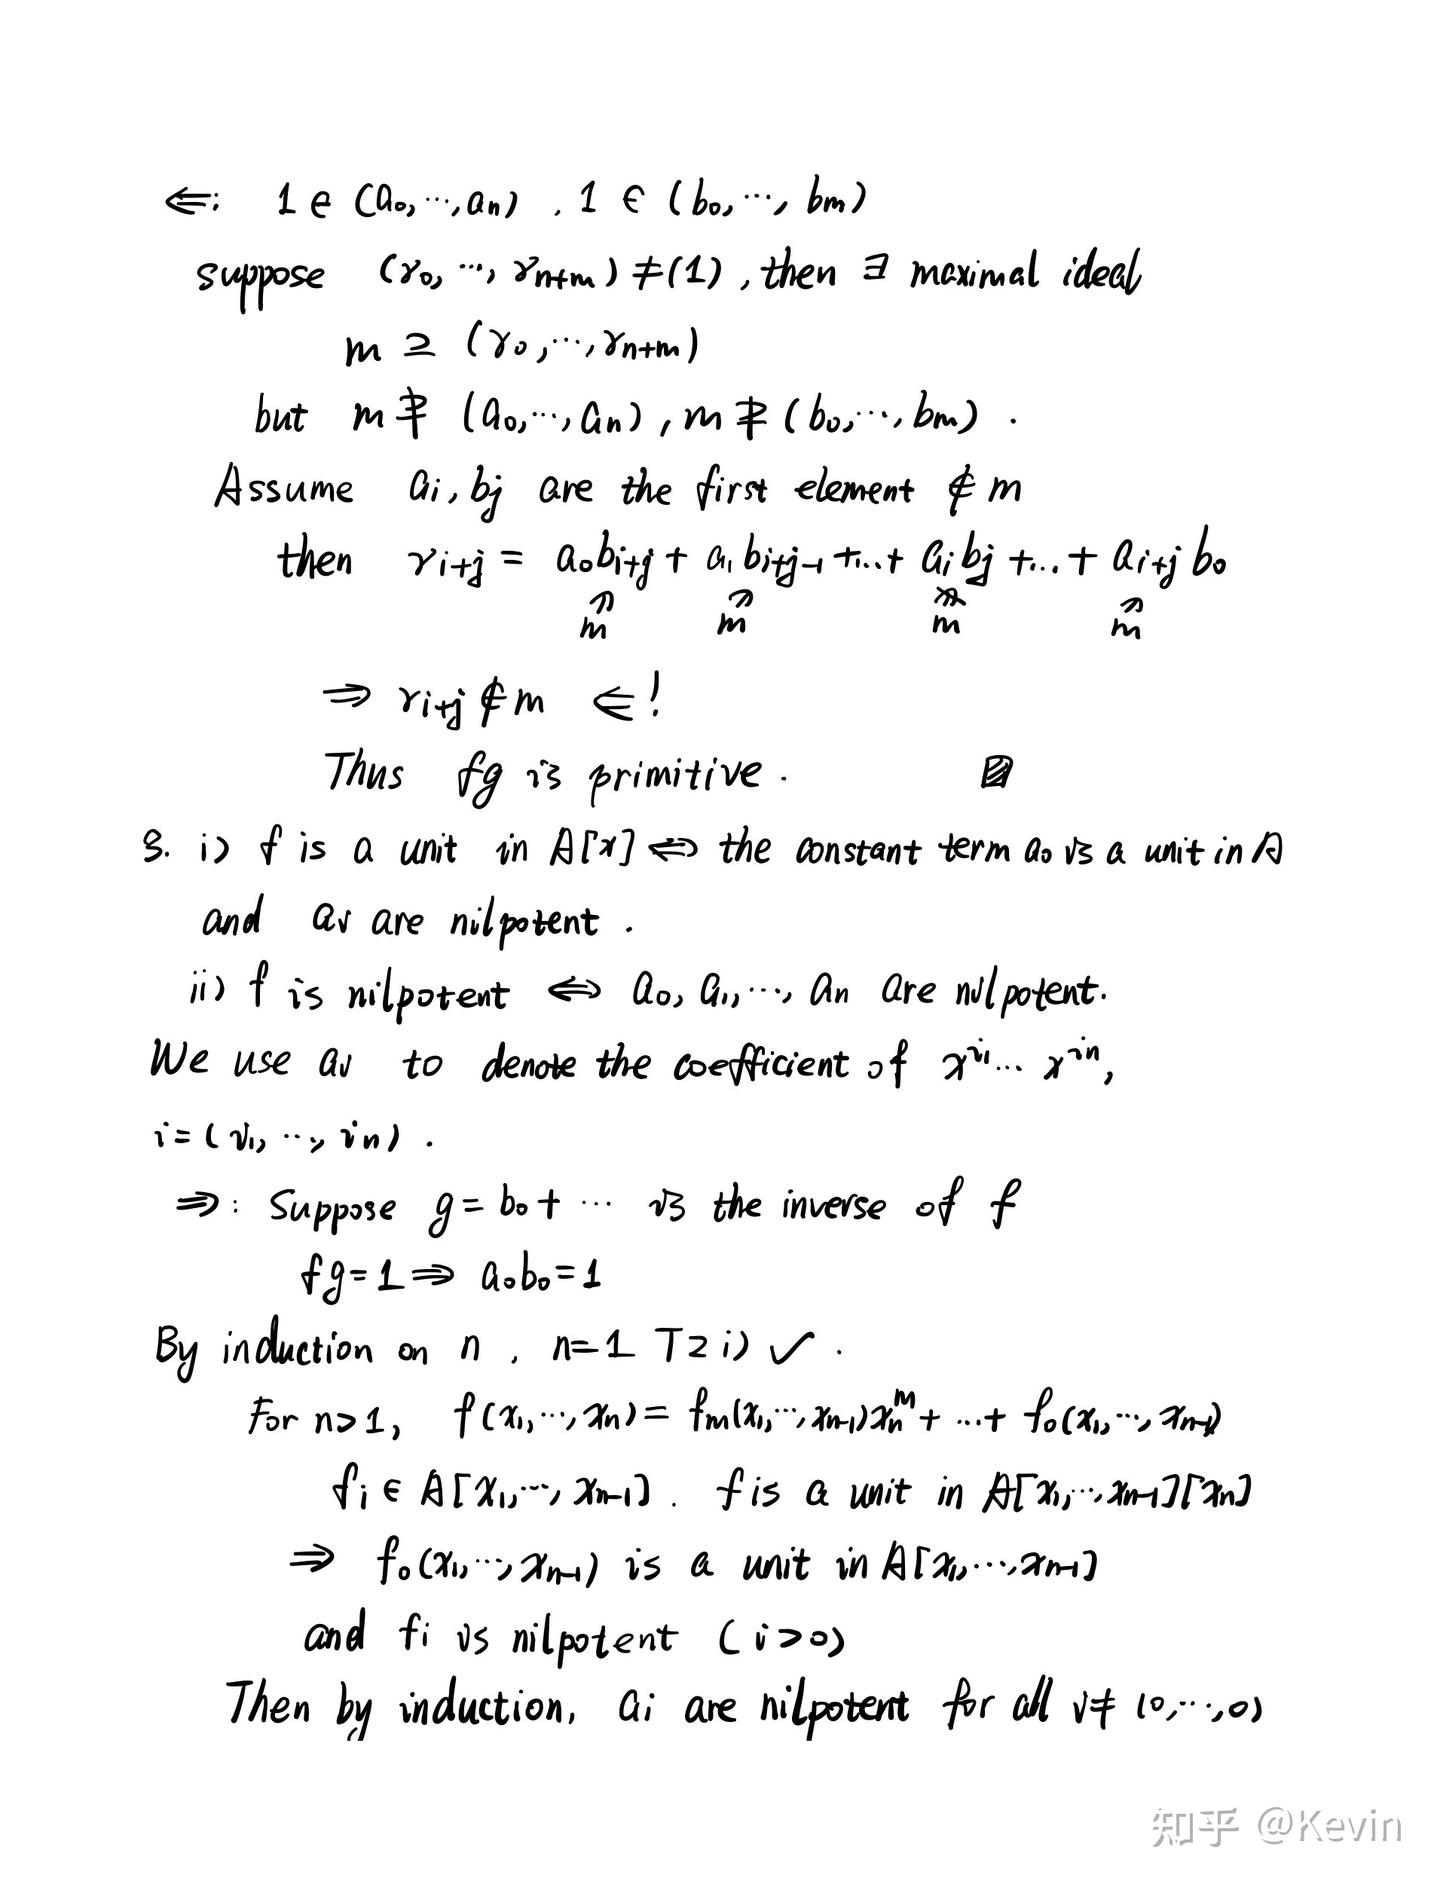 ⇐: 1 ∈ (a₀, ⋯, aₙ) . 1 ∈ (b₀, ⋯, bₘ)
suppose (γ₀, ⋯, γₙ₊ₘ) ≠ (1) , then ∃ maximal ideal
m ⊇ (γ₀, ⋯, γₙ₊ₘ)
but m ⊉ (a₀, ⋯, aₙ) , m ⊉ (b₀, ⋯, bₘ) .
Assume aᵢ, bⱼ are the first element ∉ m
then γᵢ₊ⱼ = a₀bᵢ₊ⱼ + a₁bᵢ₊ⱼ₋₁ + ... + aᵢbⱼ + ... + aᵢ₊ⱼb₀
m m m m
⇒ γᵢ₊ⱼ ∉ m ⇐!
Thus fg is primitive.
3. i) f is a unit in A[x] ⇔ the constant term a₀ is a unit in A
and aᵢ are nilpotent .
ii) f is nilpotent ⇔ a₀, a₁, ⋯, aₙ are nilpotent.
We use aᵢ to denote the coefficient of x^{i₁} ⋯ x^{iₙ},
i = (i₁, ⋯, iₙ) .
⇒: Suppose g = b₀ + ⋯ is the inverse of f
fg = 1 ⇒ a₀b₀ = 1
By induction on n , n=1 T2 i) ✓ .
For n>1, f(x₁, ⋯, xₙ) = fₘ(x₁, ⋯, xₙ₋₁)xₙᵐ + ... + f₀(x₁, ⋯, xₙ₋₁)
fᵢ ∈ A[x₁, ⋯, xₙ₋₁] . f is a unit in A[x₁, ⋯, xₙ₋₁][xₙ]
⇒ f₀(x₁, ⋯, xₙ₋₁) is a unit in A[x₁, ⋯, xₙ₋₁]
and fᵢ is nilpotent (i>0)
Then by induction, aᵢ are nilpotent for all i ≠ (0, ⋯, 0)
知乎 @Kevin